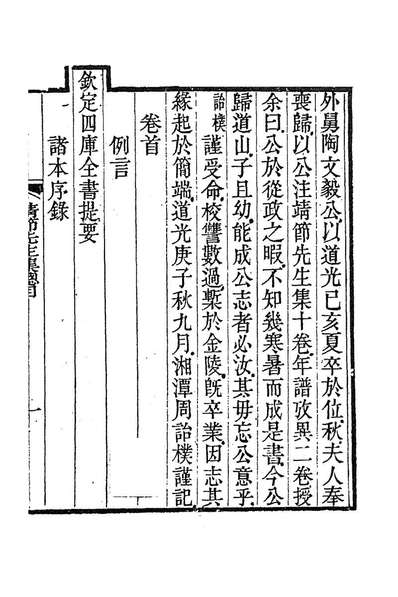 外舅陶文毅公以道光己亥夏卒於位秋夫人奉
喪歸以公注靖節先生集十卷年譜攷異二卷授
余曰公於從政之暇不知幾寒暑而成是書今公
歸道山子且幼能成公志者必汝其毋忘公意乎
詒樸謹受命校讐數過槧於金陵旣卒業因志其
緣起於簡端道光庚子秋九月湘潭周詒樸謹記
卷首
例言
欽定四庫全書提要
諸本序錄
靖節先生集總目
一